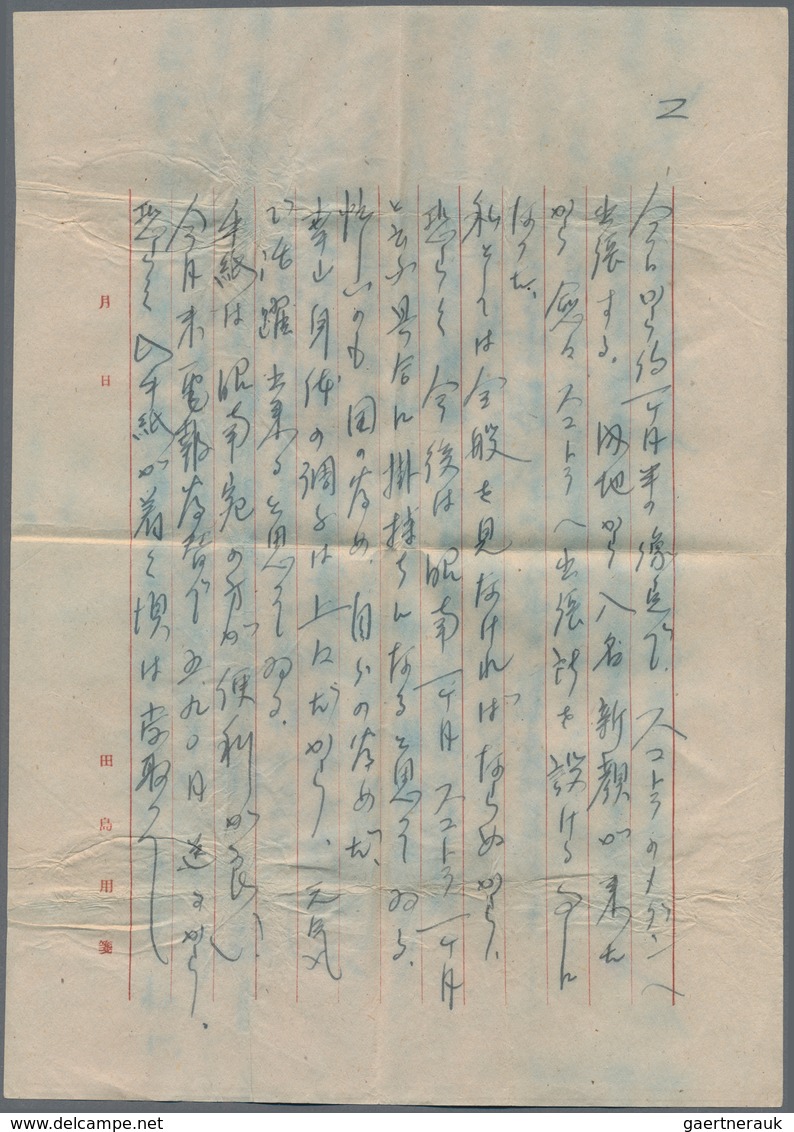 2
今日から約一ヶ月半の予定で、スマトラのメダンへ
出張する。内地から八名新顔が来た
から愈々スマトラへ出張所を設ける事に
なった。
私としては全般を見なければならぬから、
恐らく今後は昭南一ヶ月スマトラ一ヶ月
と云ふ具合に掛持ちになると思ってゐる。
忙しいのも国の為め、自分の為めだ、
幸い身体の調子は上々だから、元気
で活躍出来ると思ってゐる。
手紙は昭南宛の方が便利が良い。
今月末電報為替で五九〇円送るから、
恐らく此手紙が着く頃は受取って
月 日
田島用箋
gaertnerauk